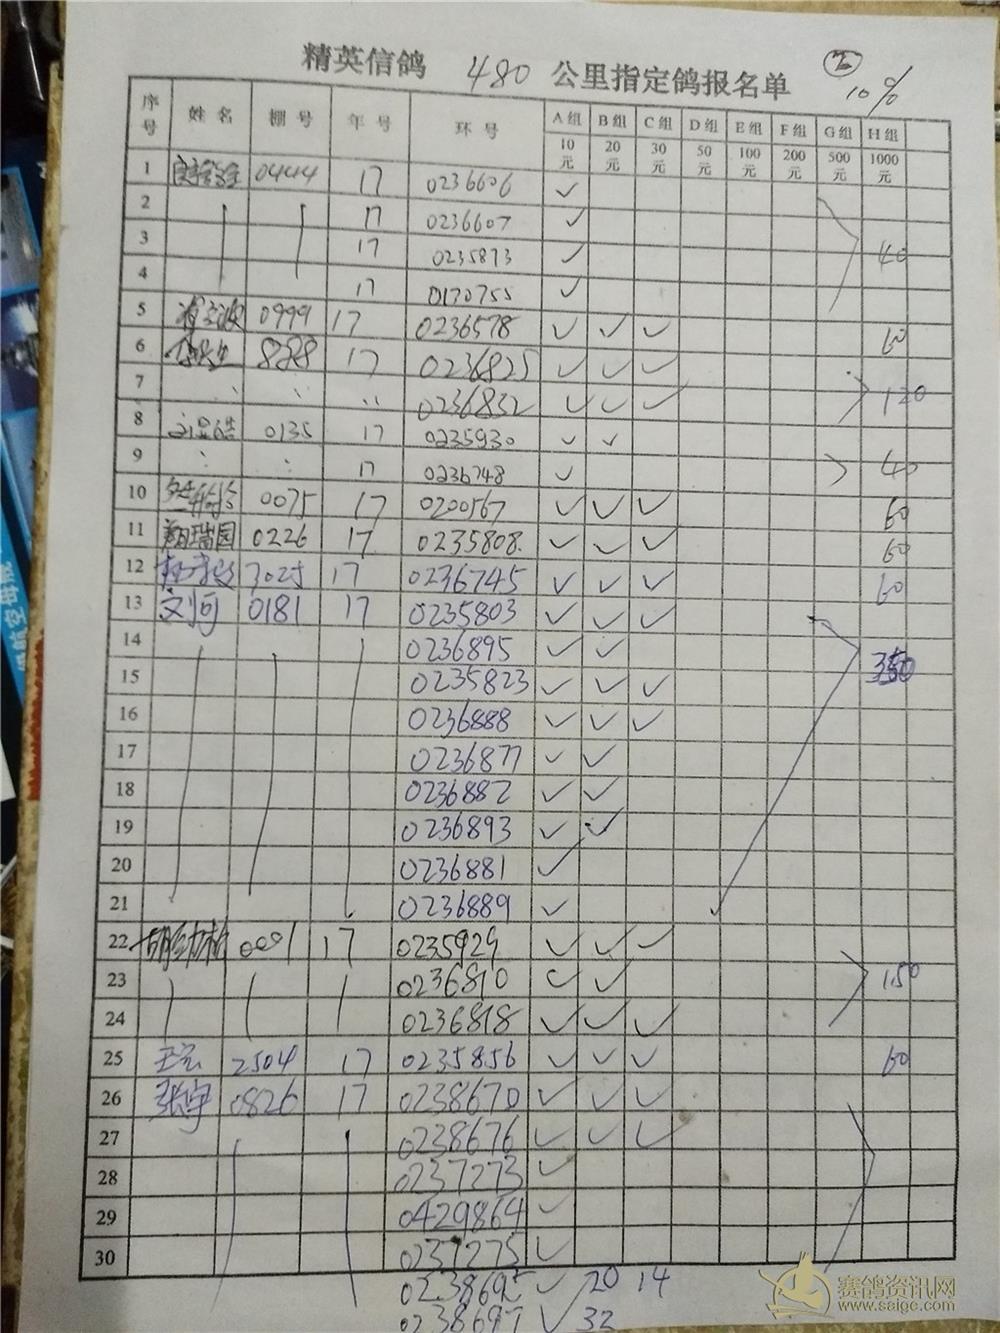 精英信鸽 480 公里指定鸽报名单
10%
序号 姓名 棚号 年号 环号 A组 B组 C组 D组 E组 F组 G组 H组
10元 20元 30元 50元 100元 200元 500元 1000元
1 0444 17 0236606 ✓
2 17 0236607 ✓
3 17 0235873 ✓ 40
4 17 0170755 ✓
5 0999 17 0236578 ✓ ✓ ✓ 60
6 8288 17 0236825 ✓ ✓ ✓
7 0236832 ✓ ✓ ✓ 120
8 0135 17 0235930 ✓ ✓
9 17 0236748 ✓ 40
10 0075 17 0200567 ✓ ✓ ✓ 60
11 瑞国 0226 17 0235808 ✓ ✓ ✓ 60
12 3025 17 0236745 ✓ ✓ ✓ 60
13 文河 0181 17 0235803 ✓ ✓ ✓
14 0236895 ✓ ✓
15 0235823 ✓ ✓ ✓
16 0236888 ✓ ✓ ✓
17 0236877 ✓ ✓
18 0236882 ✓ ✓
19 0236893 ✓ ✓
20 0236881 ✓
21 0236889 ✓
22 0001 17 0235929 ✓ ✓ ✓
23 0236810 ✓ ✓ 150
24 0236818 ✓ ✓ ✓
25 王宏 2504 17 0235856 ✓ ✓ ✓ 60
26 张宇 0826 17 0238670 ✓ ✓ ✓
27 0238676 ✓ ✓ ✓
28 0237273 ✓
29 0429864 ✓
30 0237275 ✓
0238695 ✓ 20 14
0238697 ✓ 32
赛鸽资讯网
www.saige.com